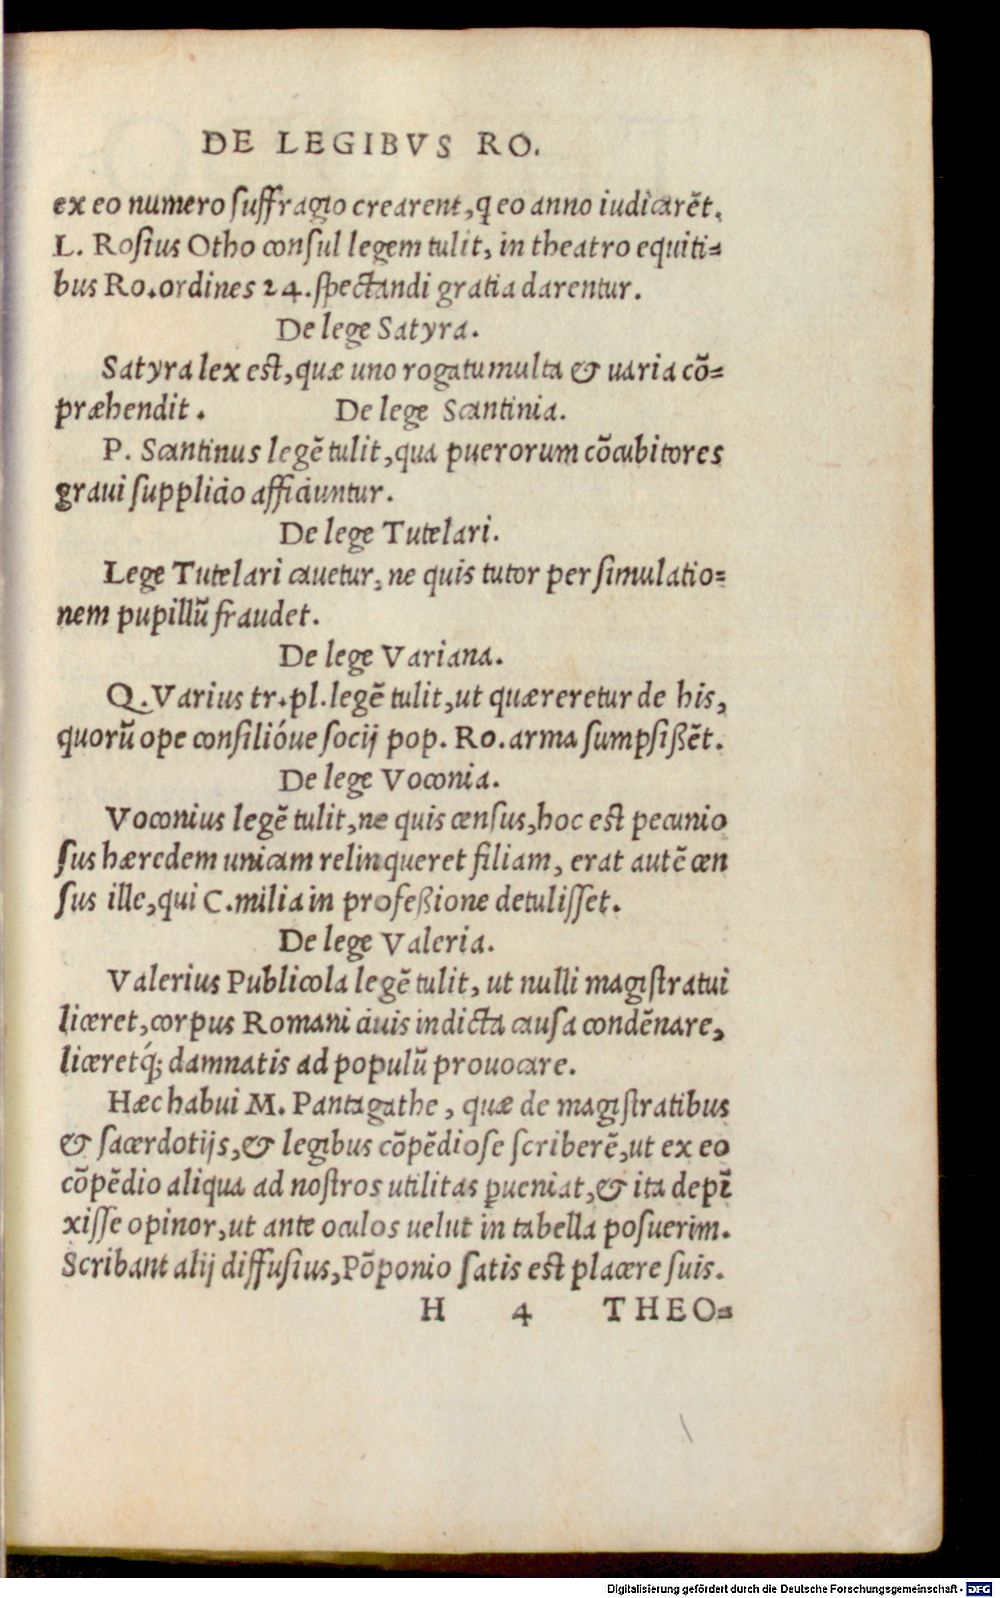 DE LEGIBVS RO.
ex eo numero ſuffragio crearent, q eo anno iudicarēt.
L. Roſius Otho conſul legem tulit, in theatro equiti⸗
bus Ro. ordines 24. ſpectandi gratia darentur.
De lege Satyra.
Satyra lex est, quæ uno rogatu multa & uaria cō⸗
præhendit. De lege Scantinia.
P. Scantinus legē tulit, qua puerorum cōcubitores
graui ſupplicio afficiuntur.
De lege Tutelari.
Lege Tutelari cauetur, ne quis tutor per ſimulatio⸗
nem pupillū fraudet.
De lege Variana.
Q. Varius tr. pl. legē tulit, ut quæreretur de his,
quorū ope conſilióue ſocij pop. Ro. arma ſumpſißēt.
De lege Voconia.
Voconius legē tulit, ne quis cenſus, hoc est pecunio
ſus hæredem unicam relinqueret filiam, erat autē cen
ſus ille, qui C. milia in profeßione detuliſſet.
De lege Valeria.
Valerius Publicola legē tulit, ut nulli magiſtratui
liceret, corpus Romani ciuis indicta cauſa condēnare,
liceretq́; damnatis ad populū prouocare.
Hæc habui M. Pantagathe, quæ de magiſtratibus
& ſacerdotijs, & legibus cōpēdioſe ſcriberē, ut ex eo
cōpēdio aliqua ad noſtros utilitas ꝑueniat, & ita depī
xiſſe opinor, ut ante oculos uelut in tabella poſuerim.
Scribant alij diffuſius, Pōponio ſatis est placere ſuis.
H 4 THEO⸗
Digitalisierung gefördert durch die Deutsche Forschungsgemeinschaft - DFG